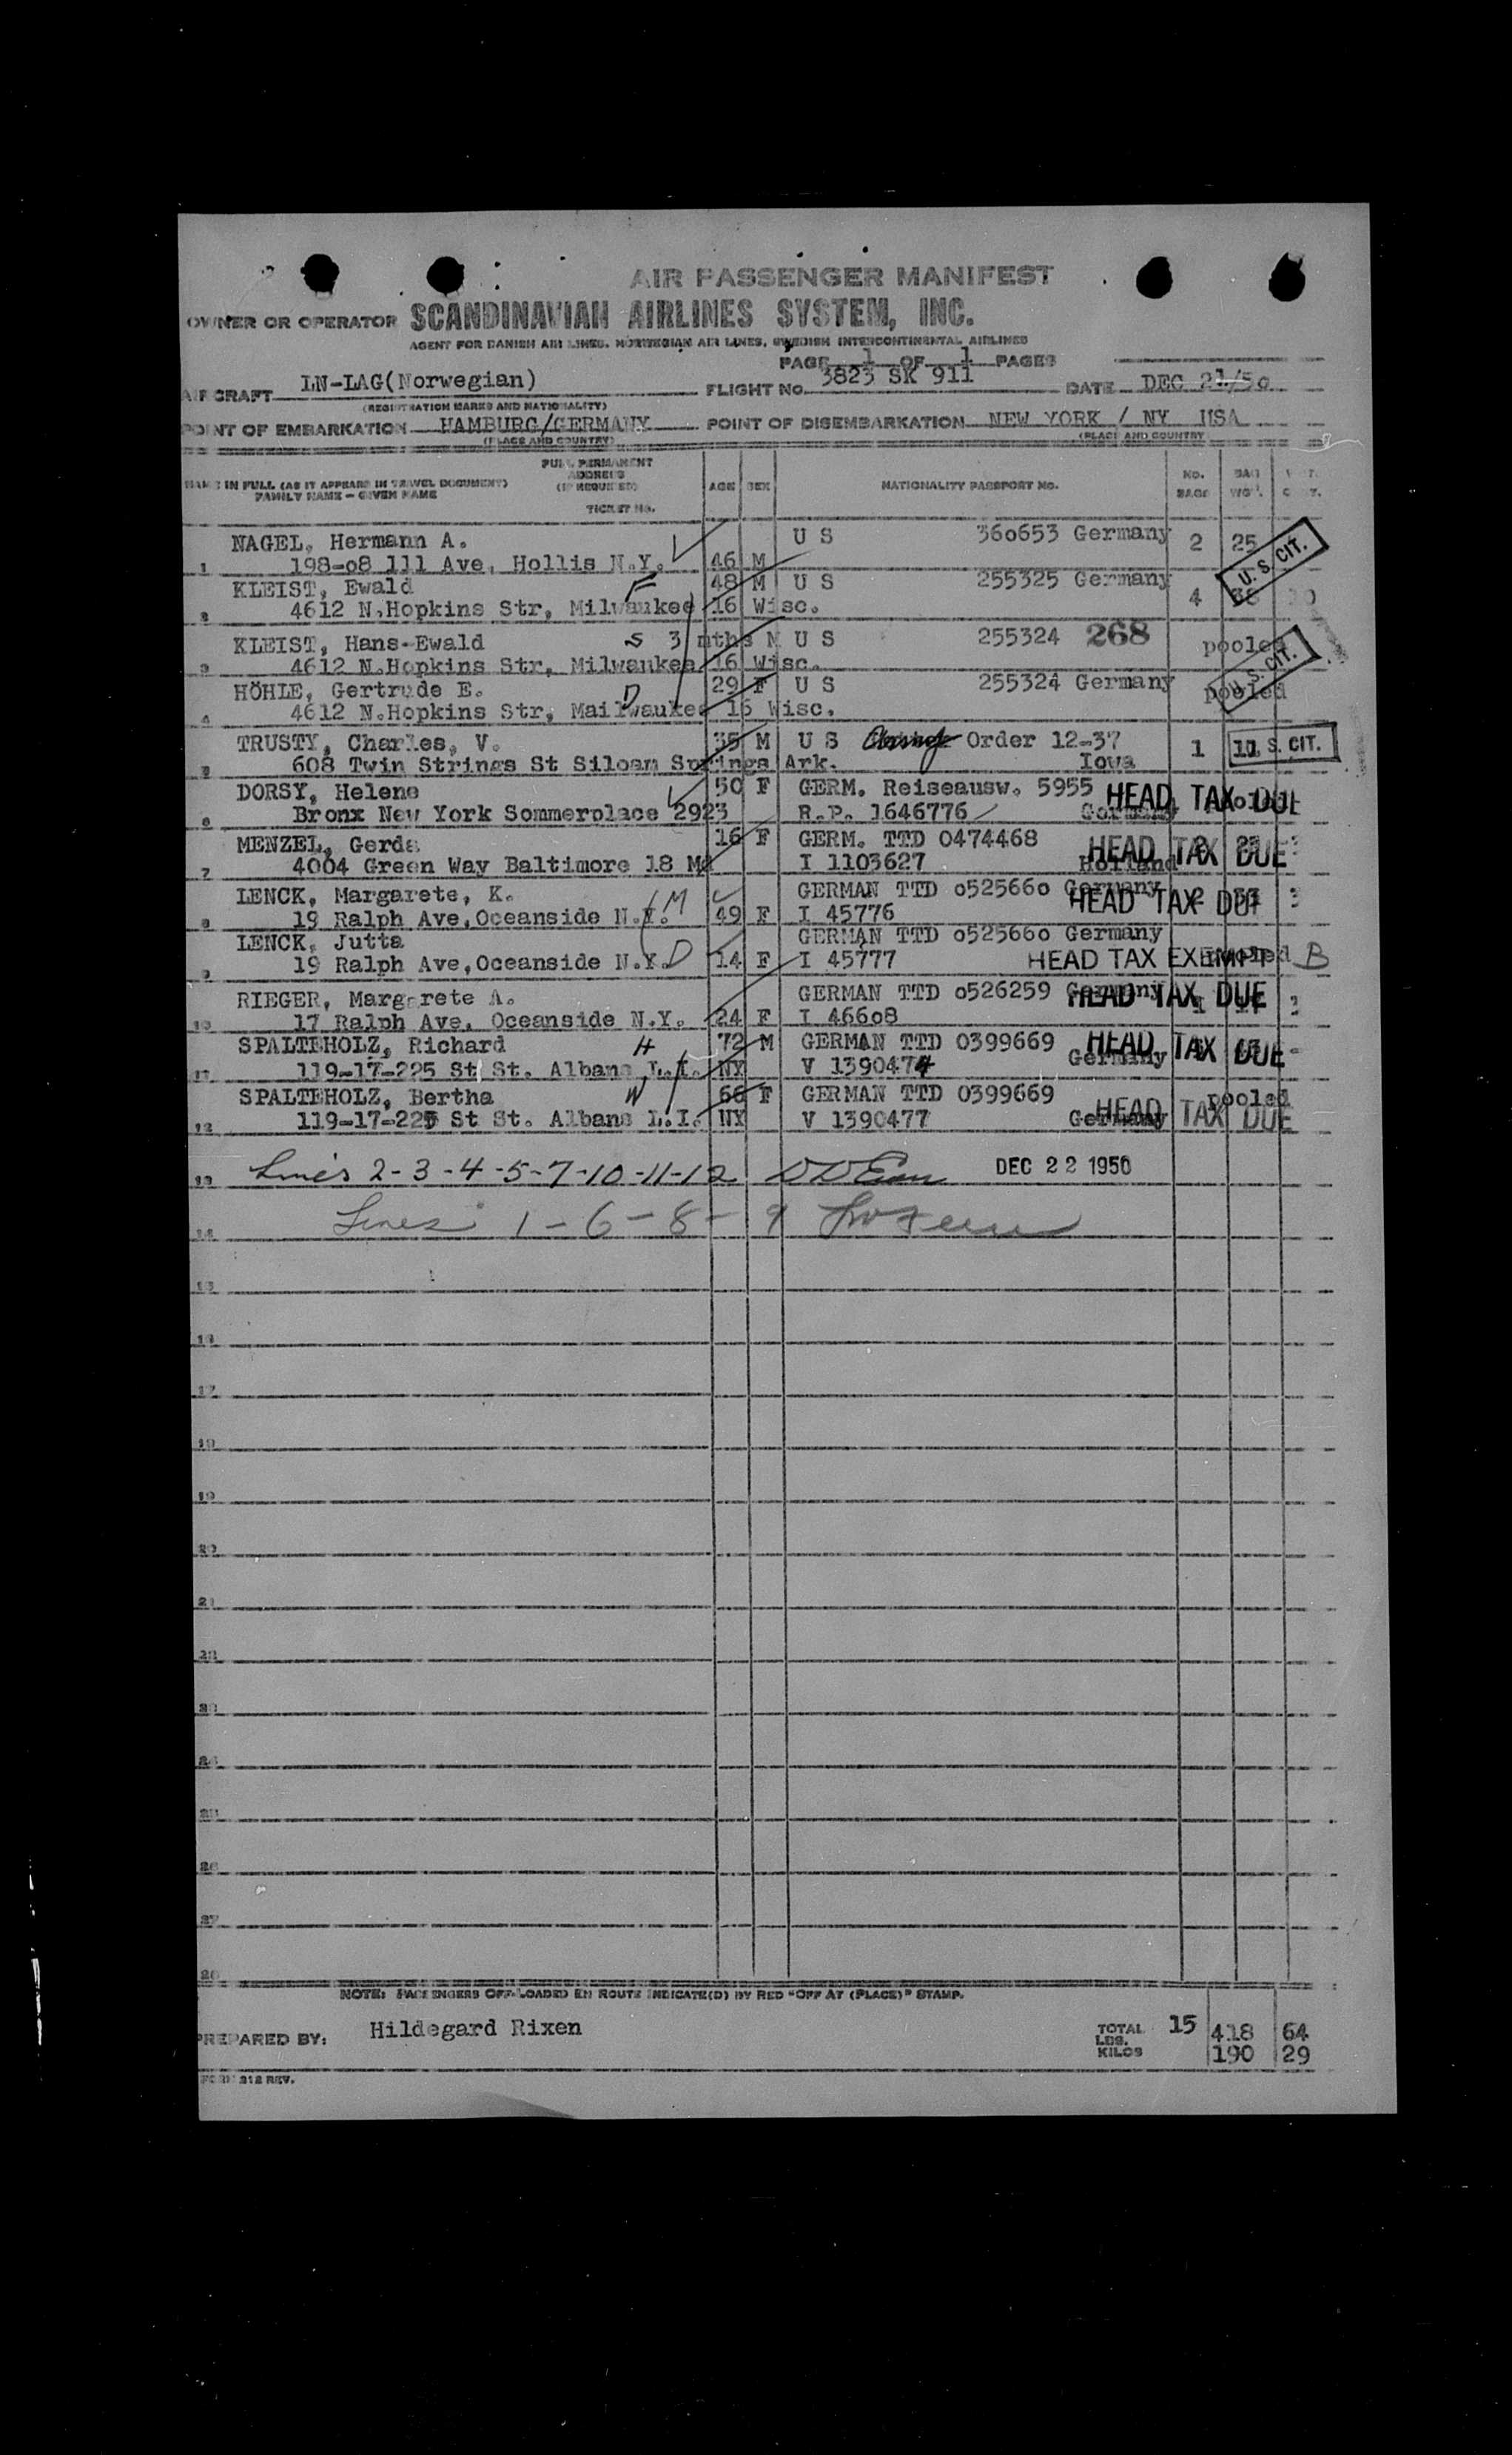 AIR PASSENGER MANIFEST
OWNER OR OPERATOR SCANDINAVIAN AIRLINES SYSTEM, INC.
AGENT FOR DANISH AIR LINES, NORWEGIAN AIR LINES, SWEDISH INTERCONTINENTAL AIRLINES
PAGE 1 OF 1 PAGES
AIRCRAFT LN-LAG(Norwegian) FLIGHT No. 3823 SK 911 DATE DEC 21/50
(REGISTRATION MARKS AND NATIONALITY)
POINT OF EMBARKATION HAMBURG/GERMANY POINT OF DISEMBARKATION NEW YORK / NY USA
(PLACE AND COUNTRY) (PLACE AND COUNTRY
NAME IN FULL (AS IT APPEARS IN TRAVEL DOCUMENT) FAMILY NAME - GIVEN NAME
FULL PERMANENT ADDRESS (IF REQUESTED) TICKET No.
AGE SEX NATIONALITY PASSPORT NO. NO. BAGS BAG WGT.
NAGEL, Hermann A. U S 360653 Germany 2 25
1 198-08 111 Ave, Hollis N.Y. 46 M U. S. CIT.
KLEIST, Ewald F 48 M U S 255325 Germany 4
2 4612 N.Hopkins Str, Milwaukee 16 Wisc.
KLEIST, Hans-Ewald S 3 mths M U S 255324 268 pooled
3 4612 N.Hopkins Str, Milwaukee 16 Wisc. U. S. CIT.
HÖHLE, Gertrude E. D 29 F U S 255324 Germany pooled
4 4612 N.Hopkins Str, Mailwaukee 16 Wisc.
TRUSTY, Charles, V. 35 M U S Order 12-37 1 U. S. CIT.
5 608 Twin Strings St Siloam Springs Ark. Iowa
DORSY, Helene 50 F GERM. Reiseausw. 5955 HEAD TAX DUE
6 Bronx New York Sommerplace 2923 R.P. 1646776 Germany
MENZEL, Gerda 16 F GERM. TTD 0474468 HEAD TAX DUE
7 4004 Green Way Baltimore 18 Md I 1103627 Holland
LENCK, Margarete, K. M GERMAN TTD 0525660 Germany HEAD TAX DUE
8 19 Ralph Ave,Oceanside N.Y. 49 F I 45776
LENCK, Jutta GERMAN TTD 0525660 Germany
9 19 Ralph Ave,Oceanside N.Y. D 14 F I 45777 HEAD TAX EXEMPT pooled B
RIEGER, Margarete A. GERMAN TTD 0526259 Germany HEAD TAX DUE
10 17 Ralph Ave, Oceanside N.Y. 24 F I 46608
SPALTEHOLZ, Richard H 72 M GERMAN TTD 0399669 HEAD TAX DUE
11 119-17-225 St St. Albans L.I. NY V 1390474 Germany
SPALTEHOLZ, Bertha W 66 F GERMAN TTD 0399669 pooled
12 119-17-225 St St. Albans L.I. NY V 1390477 Germany HEAD TAX DUE
13 Lines 2-3-4-5-7-10-11-12 DEC 22 1950
14 Lines 1-6-8-9
15
16
17
18
19
20
21
22
23
24
25
26
27
28
NOTE: PASSENGERS OFF-LOADED EN ROUTE INDICATE(D) BY RED "OFF AT (PLACE)" STAMP.
PREPARED BY: Hildegard Rixen TOTAL 15
LBS. 418 64
KILOS 190 29
FORM 212 REV.